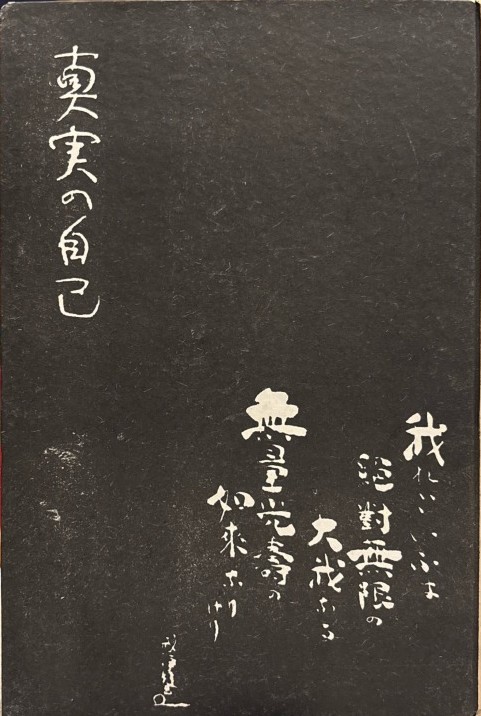 真実の自己
我れといふは
絶對無限の
大我なる
無量光壽の
如來なりけり